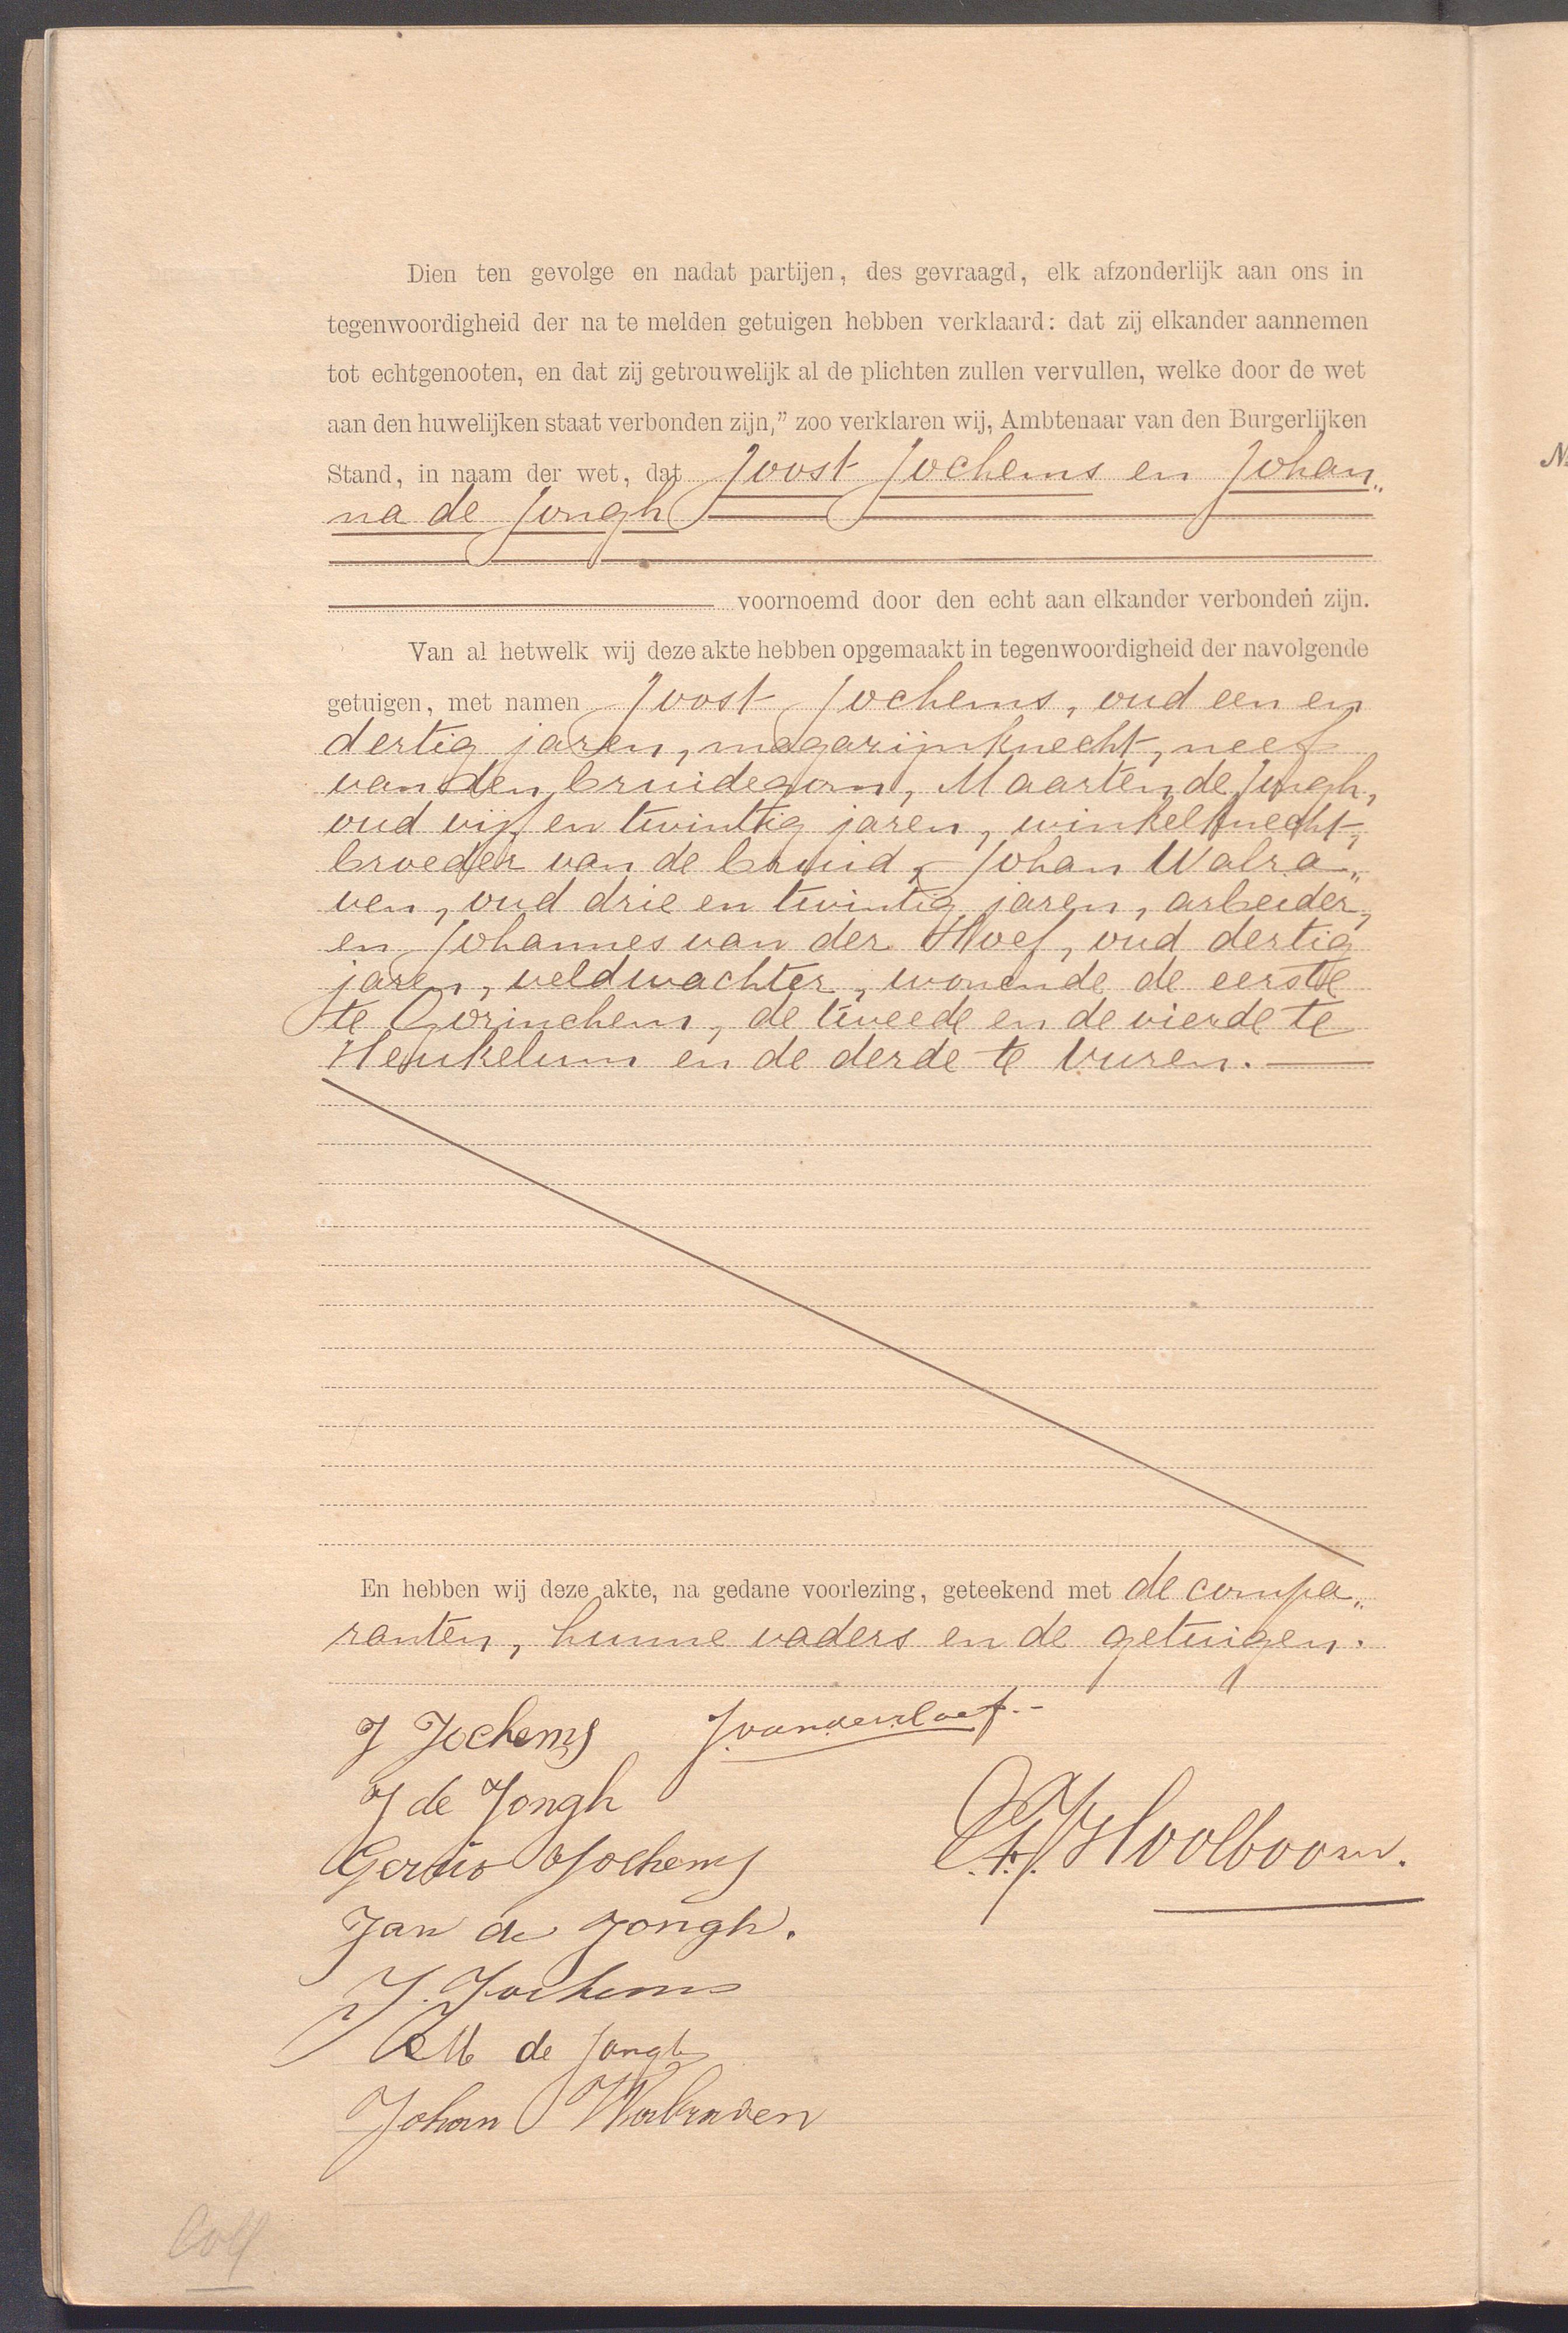 Dien ten gevolge en nadat partijen, des gevraagd, elk afzonderlijk aan ons in
tegenwoordigheid der na te melden getuigen hebben verklaard: dat zij elkander aannemen
tot echtgenooten, en dat zij getrouwelijk al de plichten zullen vervullen, welke door de wet
aan den huwelijken staat verbonden zijn,” zoo verklaren wij, Ambtenaar van den Burgerlijken
Stand, in naam der wet, dat Joost Jochems en Johan„
na de Jongh
voornoemd door den echt aan elkander verbonden zijn.
Van al hetwelk wij deze akte hebben opgemaakt in tegenwoordigheid der navolgende
getuigen, met namen Joost Jochems, oud een en
dertig jaren, magazijnknecht, neef
van den bruidegom, Maarten de Jongh,
oud vijf en twintig jaren, winkelknecht,
broeder van de bruid, Johan Walra„
ven, oud drie en twintig jaren, arbeider,
en Johannes van der Hoef, oud dertig
jaren, veldwachter, wonende de eerste
te Gorinchem, de tweede en de vierde te
Heukelum en de derde te Vuren.
En hebben wij deze akte, na gedane voorlezing, geteekend met de compa„
ranten, hunne vaders en de getuigen.
J Jochems
J de Jongh
Jochems
Jan de Jongh.
J. Jochems
M de Jongh
Johan Walraven
Hoolboom.
Coll
N